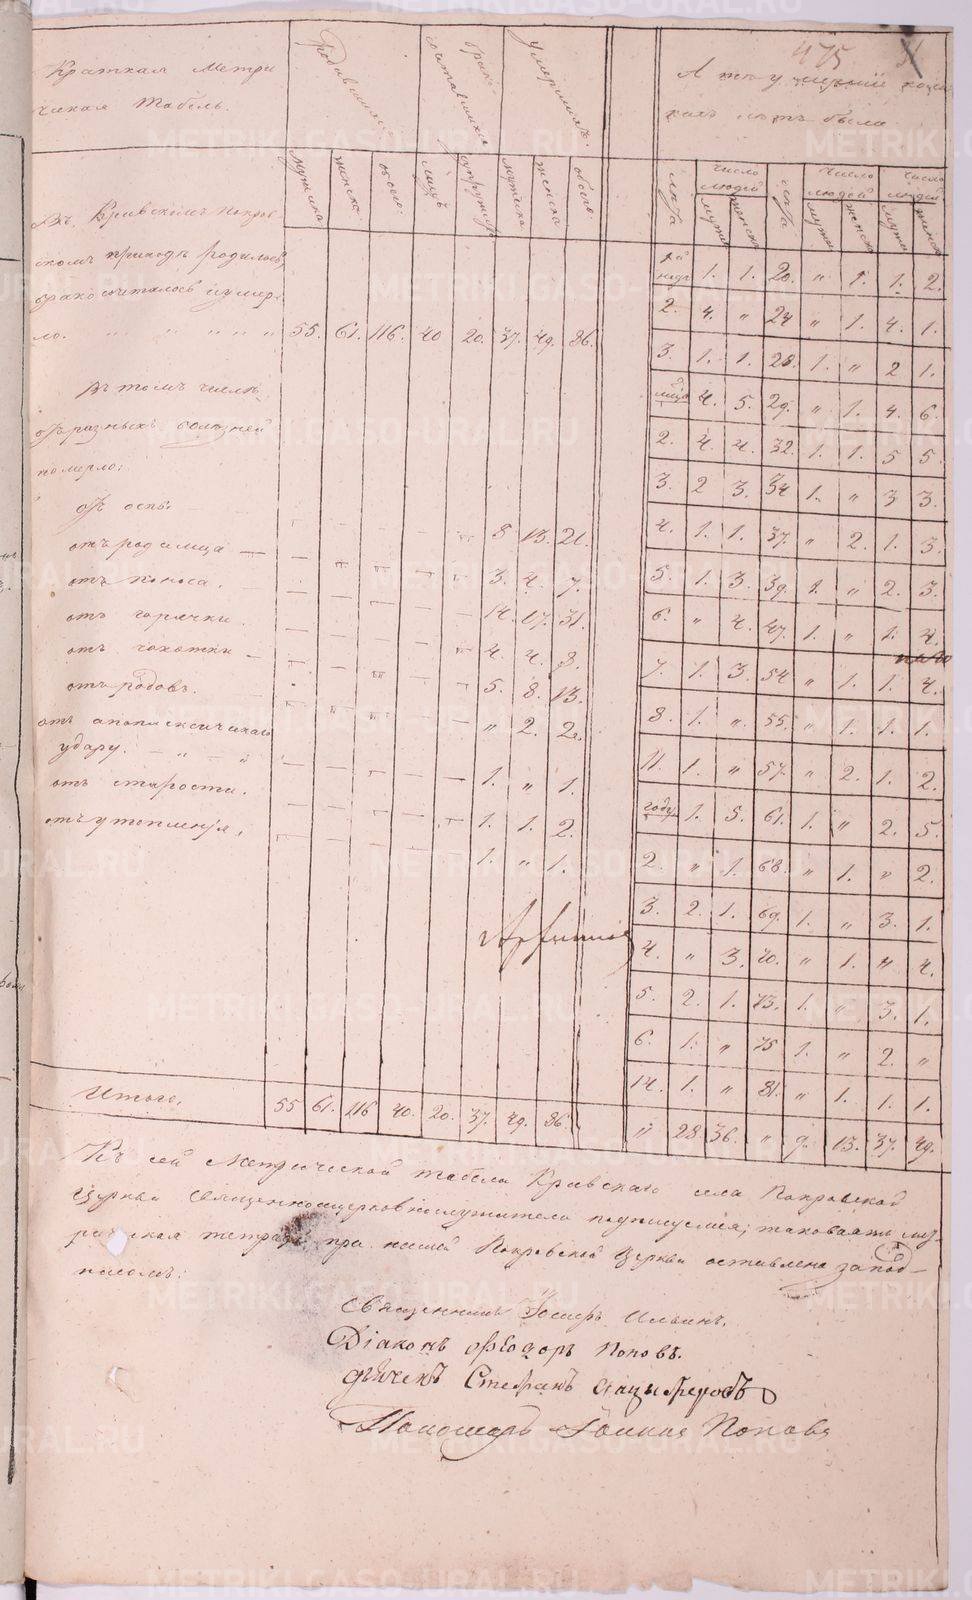 475
Краткая Метри
ческая Табель.
Родившихся
брако
сочтавшихся
умершихъ
А
коли
кихъ летъ были
мужска
женска
обоего
лицъ
супружествъ
мужска
женска
обоего
лета
число людей
мужс
женск
лета
число людей
мужс
женск
число людей
мужс
женск
Въ Кривскомъ Покров
скомъ приходе родилось,
бракосочталось и умер
ло. 55. 61. 116. 40 20. 37. 49. 86.
Въ томъ числе
отъ разныхъ болезней
померло:
отъ оспы 8 13. 21.
отъ родимца 3. 4. 7.
отъ поноса. 14. 17. 31.
отъ горячки. 4. 4. 8.
отъ чахотки 5. 8. 13.
отъ родовъ. " 2. 2.
отъ апоплексическаго
удару. 1. " 1.
отъ старости. 1. 1. 2.
отъ утопления. 1. " 1.
недр 1. 1. 20. " 1. 1. 2.
2. 4. " 24 " 1. 4. 1.
3. 1. 1. 28. 1. " 2 1.
мца 4. 5. 29. " 1. 4. 6.
2. 4. 4. 32. 1. 1. 5 5.
3. 2 3. 34 1. " 3 3.
4. 1. 1. 37. " 2. 1. 3.
5. 1. 3. 39. 1. " 2. 3.
6. " 4. 47. 1. " 1. 4.
7. 1. 3. 54 " 1. 1. 4.
8. 1. " 55. " 1. 1. 1.
11. 1. " 57. " 2. 1. 2.
году 1. 5. 61. 1. " 2. 5.
2. " 1. 68. " 1. " 2.
3. 2. 1. 69. 1. " 3. 1.
4. " 3. 70. " 1. " 4.
5. 2. 1. 73. 1. " 3. 1.
6. 1. " 75 1. " 2. "
14. 1. " 81. " 1. 1. 1.
" 28 36. " 9. 13. 37. 49.
Итого. 55 61. 116 40. 20. 37. 49. 86.
Къ сей Метрической табели Кривскаго села Покровской
Церкви священноцерковнослужители подписуемся; таковаяжъ мет
рическая тетрадь при нашей Покровской Церкви оставлена за под
писомъ:
Священникъ Иосифъ Ильинъ.
Діаконъ Ѳеодоръ Поповъ.
дьячекъ Стефанъ
Пономарь Іоаннъ Поповъ
METRIKI.GASO-URAL.RU